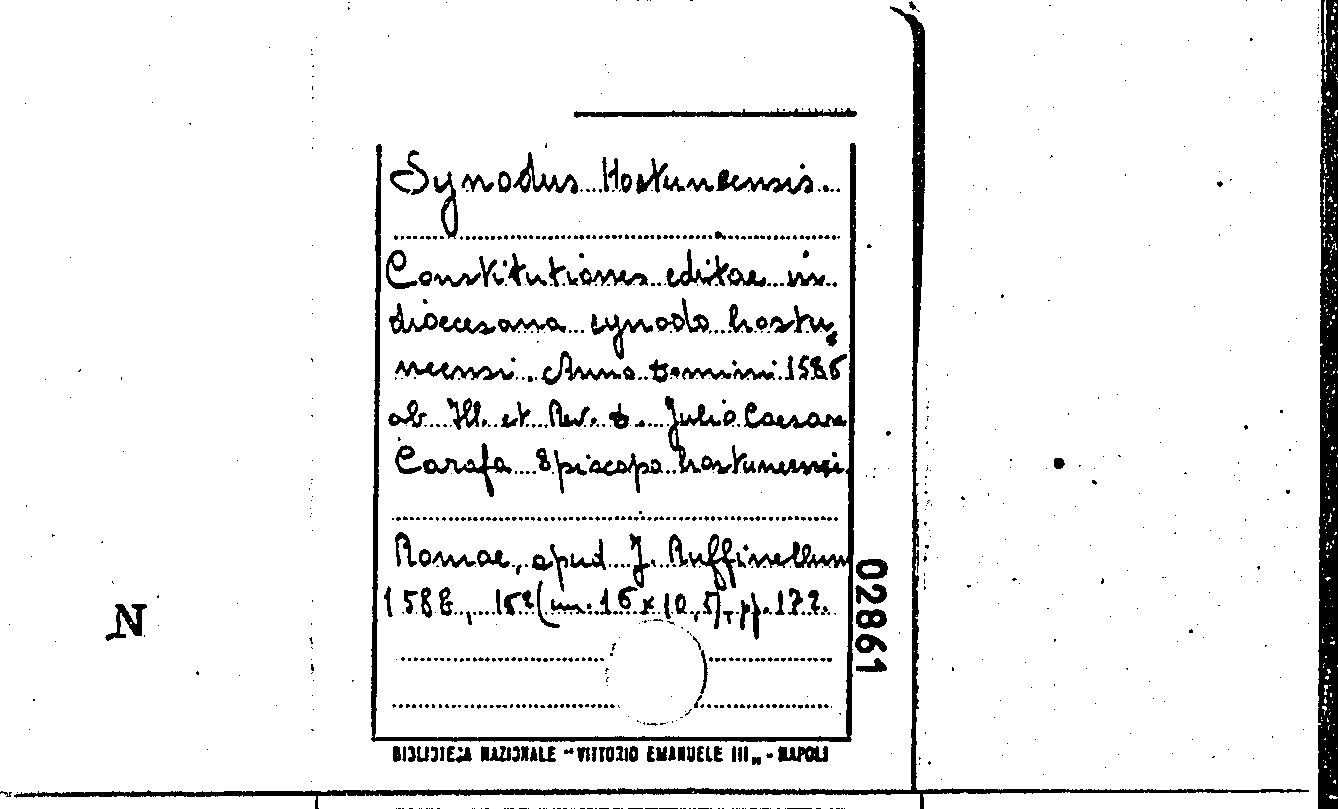 Synodus Hostuneensis.
Constitutiones editae in
diocesana synodo hostu-
neensi. Anno Domini 1586
ab Ill. et Rev. D. Julio Caesare
Carafa Episcopo hostuneensi.
Romae, apud J. Ruffinellum
1588, 16º (cm. 16 x 10,5), pp. 172.
02861
N
BIBLIOTECA NAZIONALE "VITTORIO EMANUELE III„ - NAPOLI